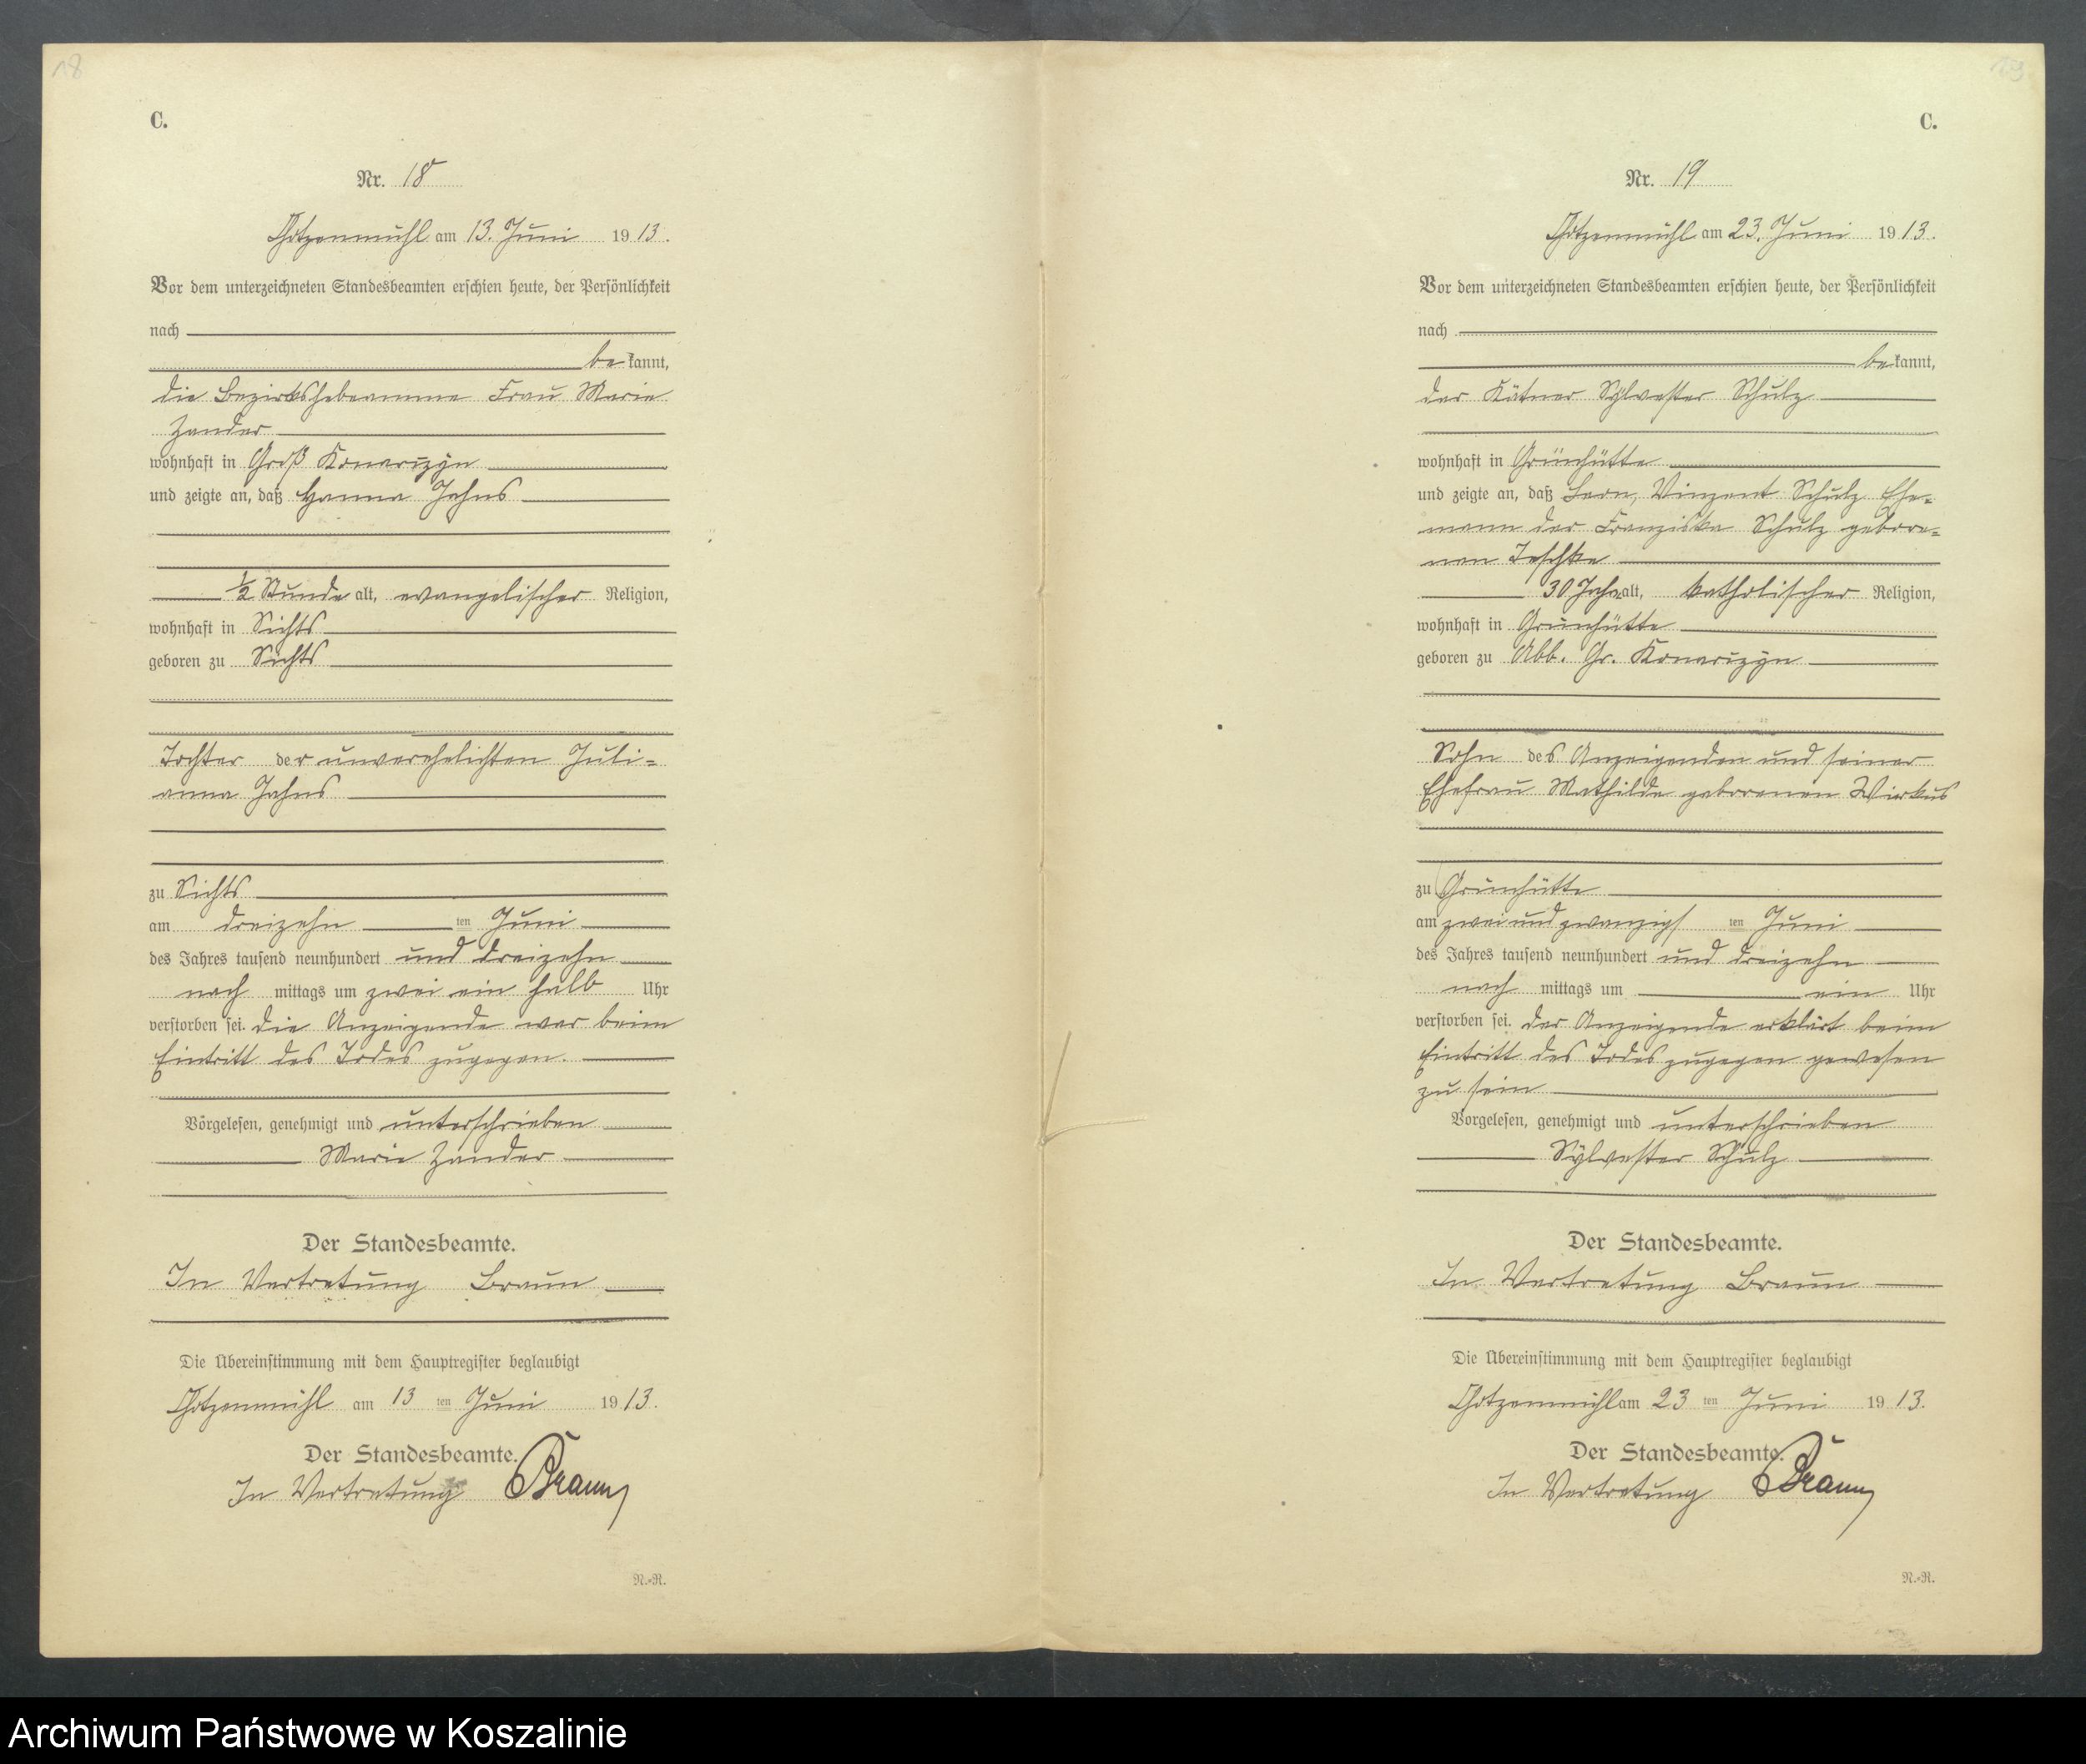 18
C.
Nr. 18
Chotzenmühl am 13. Juni 1913.
Vor dem unterzeichneten Standesbeamten erschien heute, der Persönlichkeit
nach
bekannt,
die Bezirkshebeamme Frau Marie
Zander
wohnhaft in Groß Konarczyn
und zeigte an, daß Hanna Jahns
½ Stunde alt, evangelischer Religion,
wohnhaft in Sichts
geboren zu Sichts
Tochter der unverehelichten Juli=
anna Jahns
zu Sichts
am dreizehn ten Juni
des Jahres tausend neunhundert und dreizehn
nach mittags um zwei ein halb Uhr
verstorben sei. Die Anzeigende war beim
Eintritt des Todes zugegen.
Vorgelesen, genehmigt und unterschrieben
Marie Zander
Der Standesbeamte.
In Vertretung Braun
Die Übereinstimmung mit dem Hauptregister beglaubigt
Chotzenmühl am 13 ten Juni 1913.
Der Standesbeamte.
In Vertretung Braun
N.=R.
19
C.
Nr. 19
Chotzenmühl am 23. Juni 1913.
Vor dem unterzeichneten Standesbeamten erschien heute, der Persönlichkeit
nach
bekannt,
der Kätner Sylvester Schulz
wohnhaft in Grünhütte
und zeigte an, daß Leon, Vinzent Schulz Ehe=
mann der Franziska Schulz gebore=
nen Jeschke
30 Jahr alt, katholischer Religion,
wohnhaft in Grünhütte
geboren zu Abb. Gr. Konarczyn
Sohn des Anzeigenden und seiner
Ehefrau Mathilde geborenen Wirkus
zu Grünhütte
am zwei und zwanzigs ten Juni
des Jahres tausend neunhundert und dreizehn
nach mittags um ein Uhr
verstorben sei. Der Anzeigende erklärt beim
Eintritt des Todes zugegen gewesen
zu sein
Vorgelesen, genehmigt und unterschrieben
Sylvester Schulz
Der Standesbeamte.
In Vertretung Braun
Die Übereinstimmung mit dem Hauptregister beglaubigt
Chotzenmühl am 23 ten Juni 1913.
Der Standesbeamte.
In Vertretung Braun
N.=R.
Archiwum Państwowe w Koszalinie